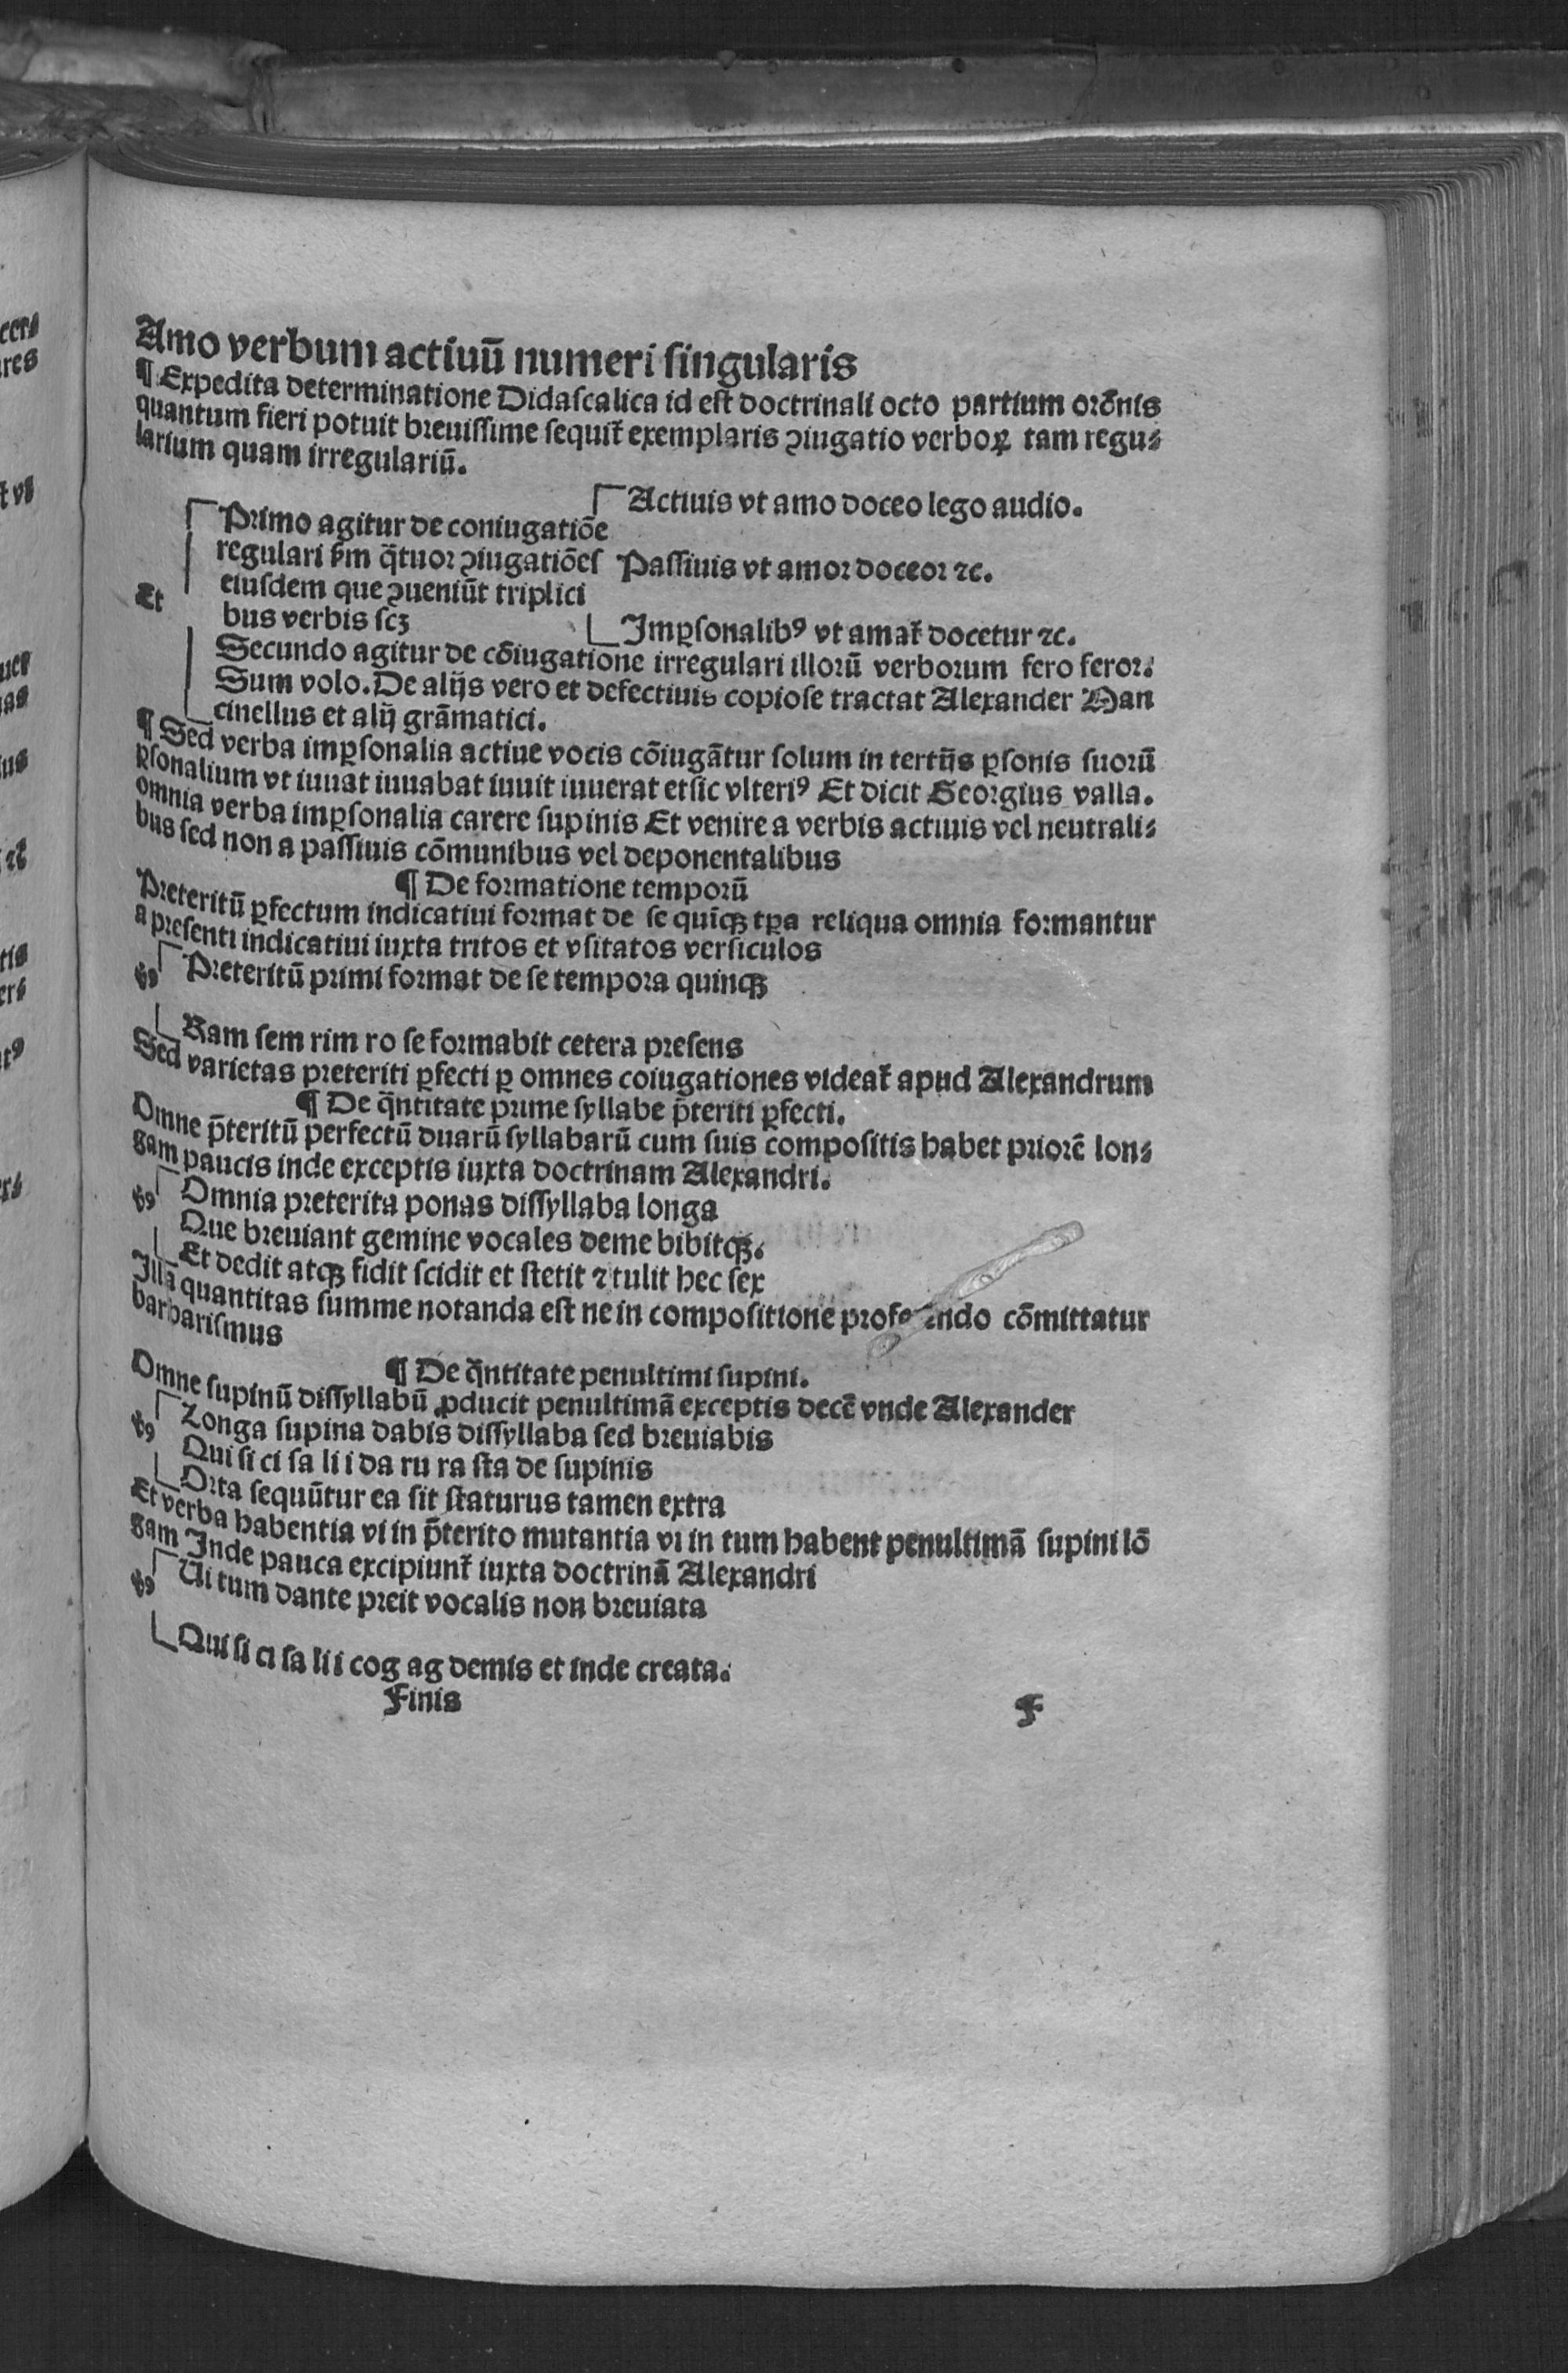 Amo verbum actiuū numeri singularis
¶ Expedita determinatione Didascalica id est doctrinali octo partium orōnis
quantum fieri potuit breuissime sequit᷑ exemplaris ꝯiugatio verboꝝ tam regu⸗
larium quam irregulariū.
Actiuis vt amo doceo lego audio.
Primo agitur de coniugatiōe
regulari ẜm q̄tuor ꝯiugatiōes Passiuis vt amor doceor ⁊c.
eiusdem que ꝯueniūt triplici
Et
bus verbis scꝫ
Imꝑsonalibꝰ vt amat᷑ docetur ⁊c.
Secundo agitur de cōiugatione irregulari illorū verborum fero feror.
Sum volo. De alijs vero et defectiuis copiose tractat Alexander Man
cinellus et alij grāmatici.
¶ Sed verba imꝑsonalia actiue vocis cōiugātur solum in tertijs ꝑsonis suorū
ꝑsonalium vt iuuat iuuabat iuuit iuuerat etsic vlteriꝰ Et dicit Georgius valla.
omnia verba imꝑsonalia carere supinis Et venire a verbis actiuis vel neutrali⸗
bus sed non a passiuis cōmunibus vel deponentalibus
¶ De formatione temporū
Preteritū ꝑfectum indicatiui format de se quīqꝫ tꝑa reliqua omnia formantur
a presenti indicatiui iuxta tritos et vsitatos versiculos
Preteritū primi format de se tempora quinqꝫ
v̓ꝰ
Ram sem rim ro se formabit cetera presens
Sed varietas preteriti ꝑfecti ꝑ omnes coiugationes videat᷑ apud Alexandrum
¶ De q̄ntitate prime syllabe p̄teriti ꝑfecti.
Omne p̄teritū perfectū duarū syllabarū cum suis compositis habet priorē lon⸗
gam paucis inde exceptis iuxta doctrinam Alexandri.
v̓ꝰ Omnia preterita ponas dissyllaba longa
Que breuiant gemine vocales deme bibitqꝫ.
Et dedit atqꝫ fidit scidit et stetit ⁊ tulit hec sex
Illa quantitas summe notanda est ne in compositione cōmittatur
barbarismus
¶ De q̄ntitate penultimi supini.
Omne supinū dissyllabū ꝓducit penultimā exceptis decē vnde Alexander
v̓ꝰ Longa supina dabis dissyllaba sed breuiabis
Qui si ci sa li i da ru ra sta de supinis
Orta sequūtur ea sit staturus tamen extra
Et verba habentia vi in p̄terito mutantia vi in tum habent penultimā supini lō
gam Inde pauca excipiunt᷑ iuxta doctrinā Alexandri
v̓ꝰ Ui tum dante preit vocalis non breuiata
Qui si ci sa li i cog ag demis et inde creata.
Finis
F